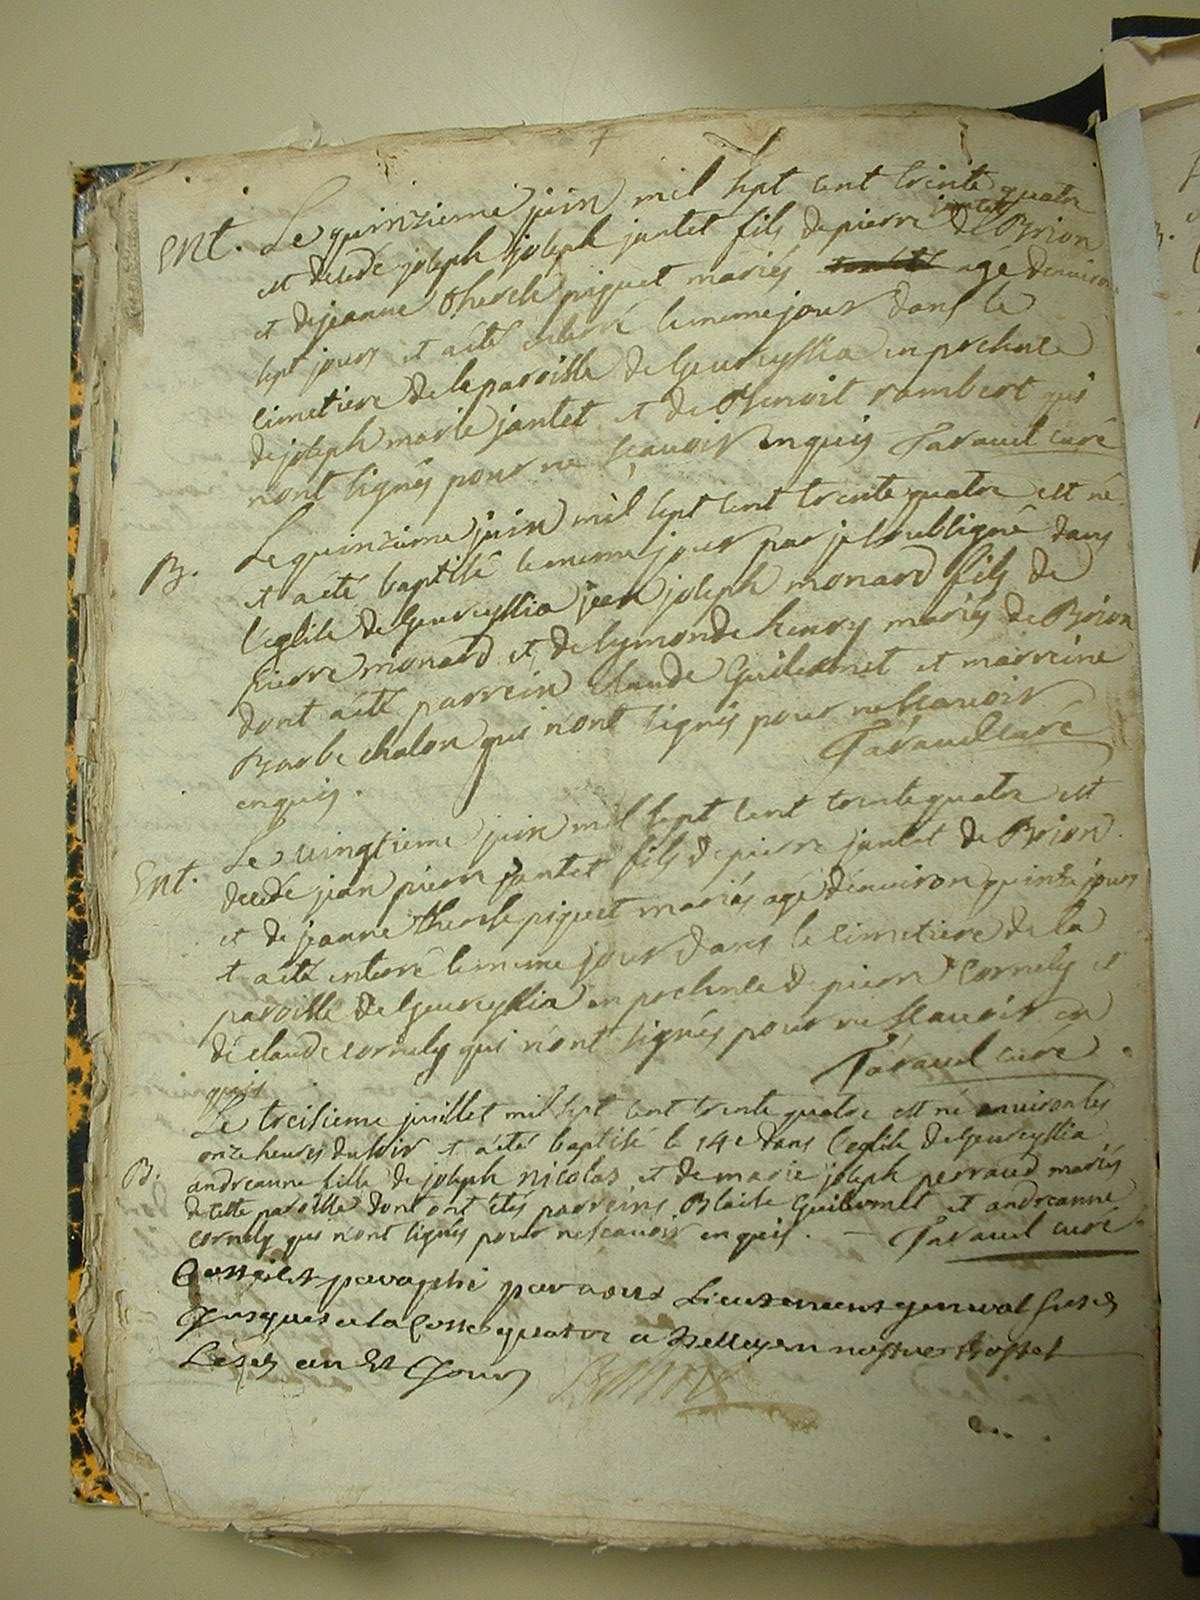 Ent. Le quinzieme juin mil sept cent trente quatre
est decedé joseph joseph jantet fils de pierre jantet de Brion
et de jeanne therese piquet mariés agé denviron
sept jours et a été enterré le meme jour dans le
cimetiere de la paroisse de Geureyssia en presence
de joseph marie jantet et de Benoit rambert qui
nont signés pour ne sçavoir enquis Taravel curé
B. Le quinzieme juin mil sept cent trente quatre est né
et a été baptisé le meme jour par je soubsigné dans
l'eglise de Geureyssia jean joseph monard fils de
pierre monard et de symonde henry mariés de Brion
dont a été parrein claude Guillermet et marreine
Barbe chalon qui n'ont signés pour ne scavoir
enquis. Taravel curé
Ent. Le vingtieme juin mil sept cent trente quatre est
decedé jean pierre jantet fils de pierre jantet de Brion
et de jeanne therese piquet mariés agé denviron quinze jours
et a été enterré le meme jour dans le cimetiere de la
paroisse de Geureyssia en presence de pierre Cornely et
de claude cornely qui n'ont signés pour ne scavoir en
quis Taravel curé
Le treisieme juillet mil sept cent trente quatre est né environ les
onze heures du soir et a été baptisé le 14e dans l'eglise de Geureyssia
B. andreanne fille de joseph nicolas et de marie joseph perraud mariés
de cette paroisse dont ont étés parreins Blaise Guillermet et andreanne
cornely qui n'ont signés pour ne scavoir enquis. Taravel curé
Cotté et paraphé par nous Lieutenant general
jusques a la Cotte quatre a Belley en nostre hostel
Les an et Jour